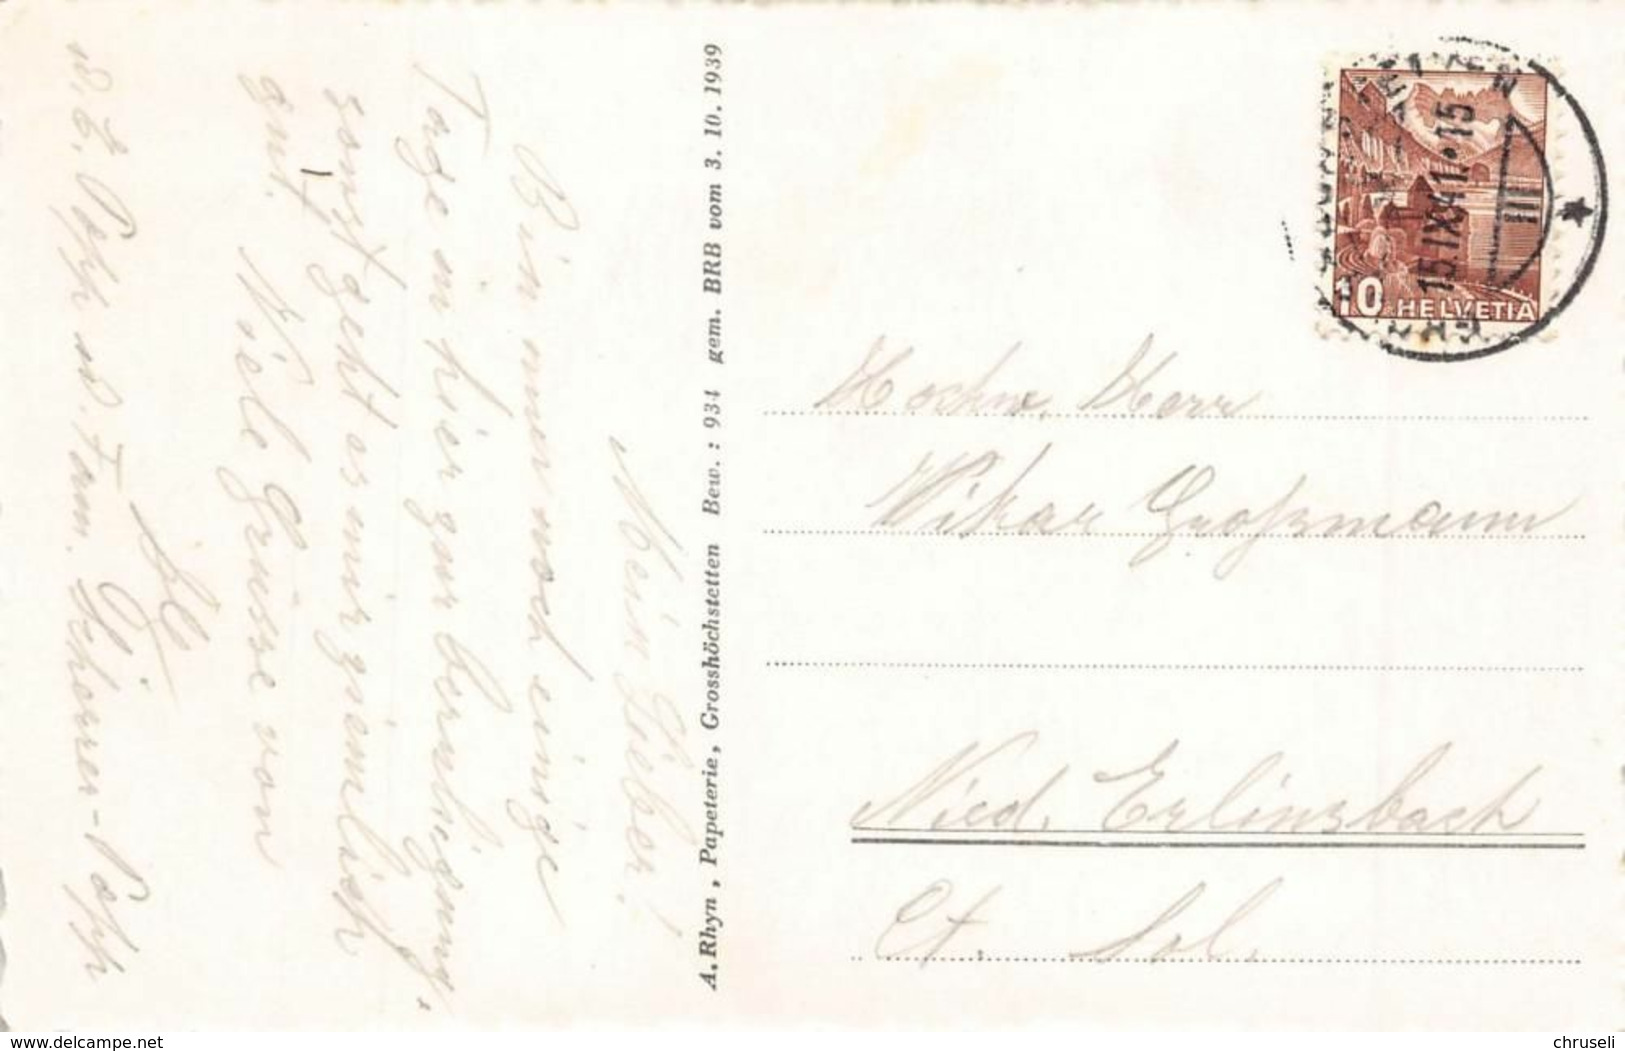 Mein Lieber!
Bin nun noch einige
Tage in hier zur
sonst geht es mir ziemlich
gut.
Viele Grüsse von
u. Fam. Schorer-
A. Rhyn, Papeterie, Grosshöchstetten Bew.: 934 gem. BRB vom 3. 10. 1939
15.IX.41.•15
III
10 HELVETIA
Hochw. Herr
Vikar Grossmann
Nied. Erlinsbach
Ct. Sol.
www.delcampe.net
chruseli